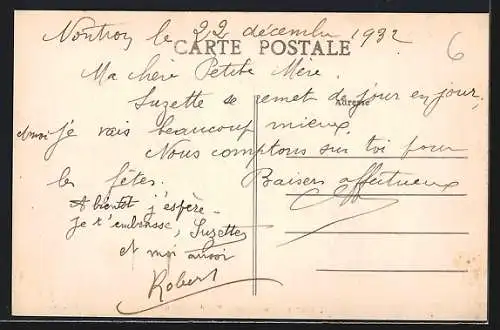 Nontron le 22 décembre 1932
CARTE POSTALE
6
Ma chère Petite Mère.
Suzette se remet de jour en jour,
Adresse
moi je vais beaucoup mieux
Nous comptons sur toi pour
les fêtes. Baisers affectueux
A bientôt j'espère.
je t'embrasse, Suzette
et moi aussi
Robert